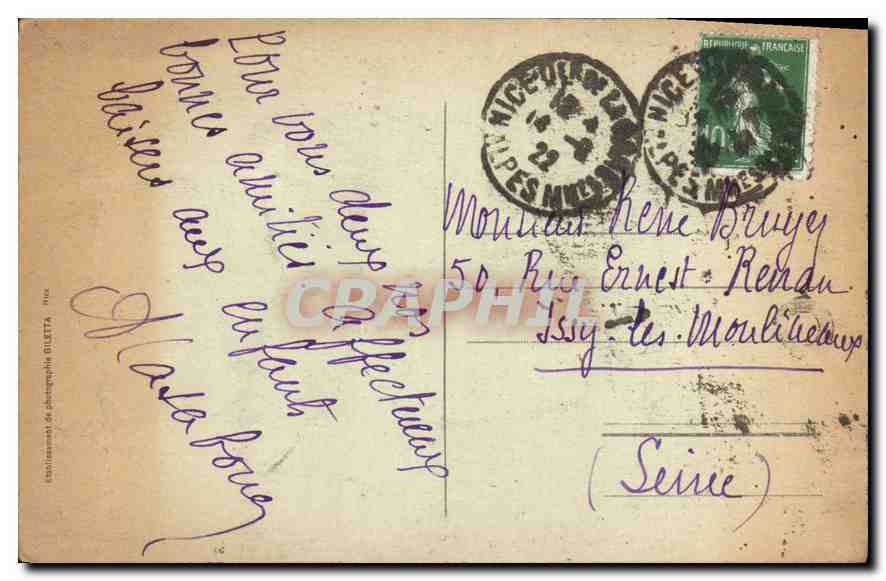 Pour vous deux nos affectueux
bonnes amitiés
baisers aux enfants
REPUBLIQUE FRANÇAISE
10
NICE
22
ALPES MMES
NICE
Monsieur René Bruyer
50. Rue Ernest-Renan
Issy-les-Moulineaux
(Seine)
CPAPHIL
Etablissement de photographie GILETTA Nice